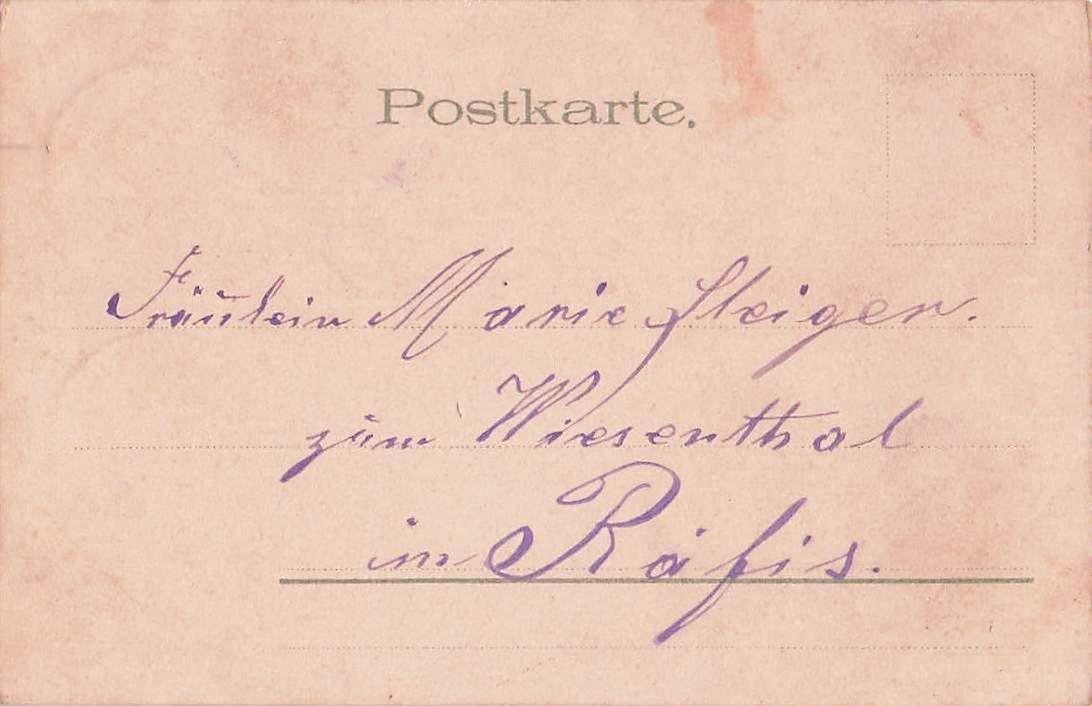 Postkarte.
Fräulein Marie Steiger.
zum Wiesenthal
in Räfis.